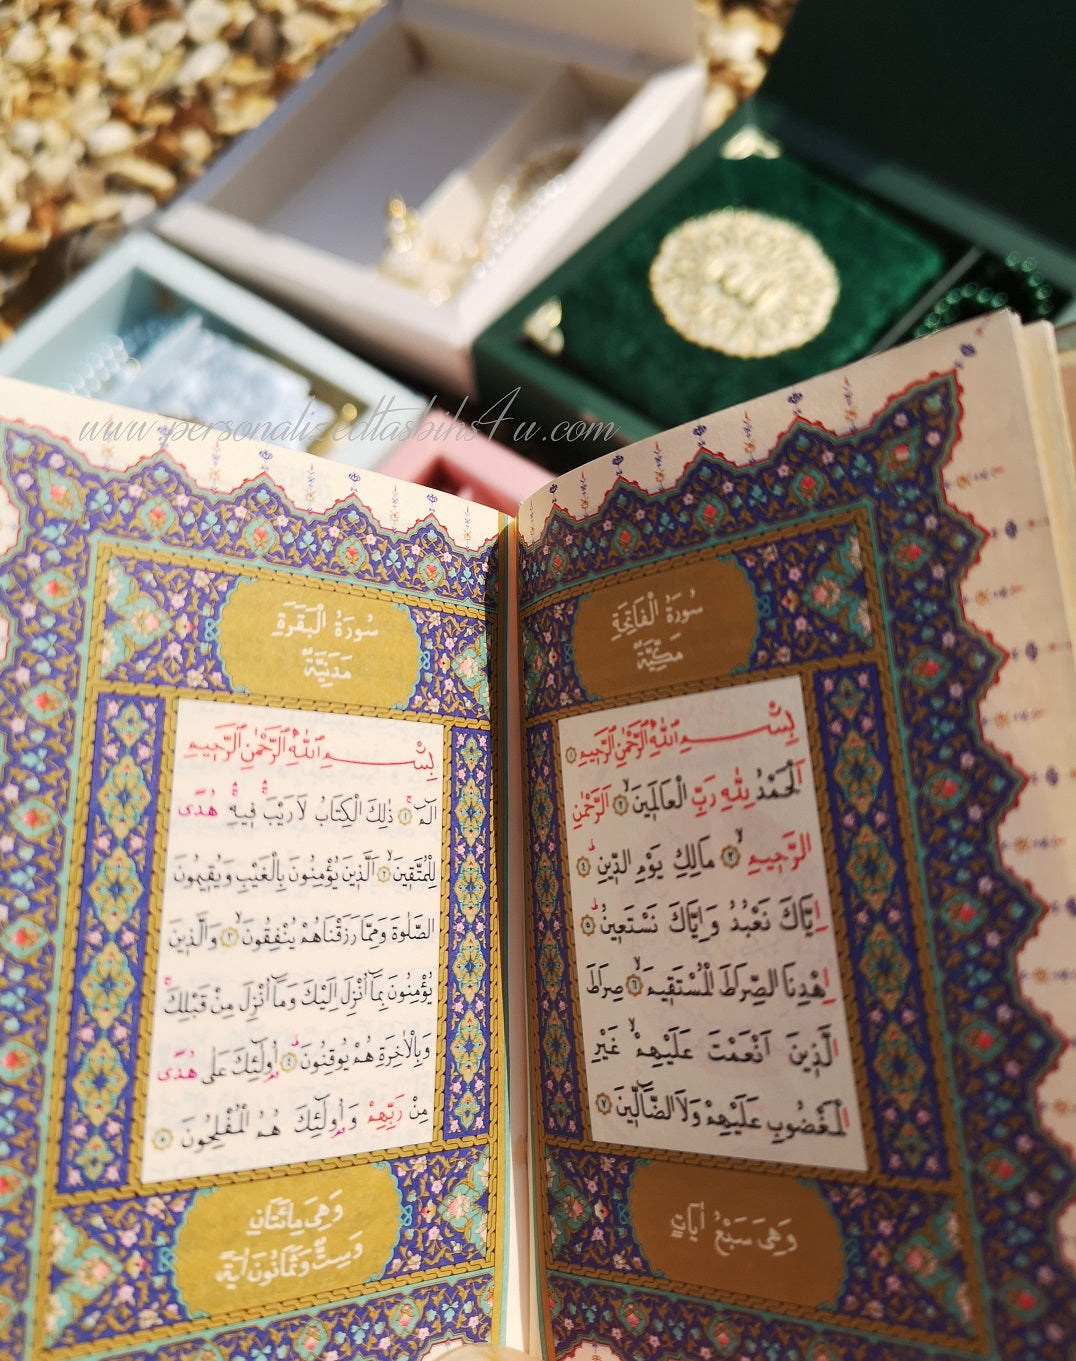 www.personalizedtasbihs4u.com
سُورَةُ الْفَاتِحَةِ
مَكِّيَّةٌ
بِسْمِ اللّٰهِ الرَّحْمٰنِ الرَّحِيمِ ١
اَلْحَمْدُ لِلّٰهِ رَبِّ الْعَالَمِينَ ٢ اَلرَّحْمٰنِ
الرَّحِيمِ ٣ مَالِكِ يَوْمِ الدِّينِ ٤
اِيَّاكَ نَعْبُدُ وَاِيَّاكَ نَسْتَعِينُ ٥
اِهْدِنَا الصِّرَاطَ الْمُسْتَقِيمَ ٦ صِرَاطَ
الَّذِينَ اَنْعَمْتَ عَلَيْهِمْ غَيْرِ
الْمَغْضُوبِ عَلَيْهِمْ وَلَا الضَّالِّينَ ٧
وَهِيَ سَبْعُ اٰيَاتٍ
سُورَةُ الْبَقَرَةِ
مَدَنِيَّةٌ
بِسْمِ اللّٰهِ الرَّحْمٰنِ الرَّحِيمِ
الٓمٓ ١ ذٰلِكَ الْكِتَابُ لَا رَيْبَ فِيهِ هُدًى
لِلْمُتَّقِينَ ٢ اَلَّذِينَ يُؤْمِنُونَ بِالْغَيْبِ وَيُقِيمُونَ
الصَّلٰوةَ وَمِمَّا رَزَقْنَاهُمْ يُنْفِقُونَ ٣ وَالَّذِينَ
يُؤْمِنُونَ بِمَٓا اُنْزِلَ اِلَيْكَ وَمَٓا اُنْزِلَ مِنْ قَبْلِكَ
وَبِالْاٰخِرَةِ هُمْ يُوقِنُونَ ٤ اُولٰٓئِكَ عَلٰى هُدًى
مِنْ رَبِّهِمْ وَاُولٰٓئِكَ هُمُ الْمُفْلِحُونَ ٥
وَهِيَ مِائَتَانِ
وَسِتٌّ وَثَمَانُونَ اٰيَةً